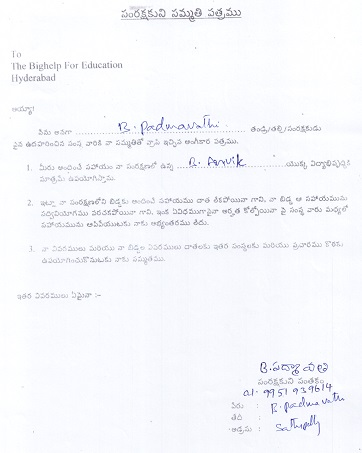 సంరక్షకుని సమ్మతి పత్రము
To
The Bighelp For Education
Hyderabad
అయ్యా!
నేను అనగా B. Padmavathi తండ్రి/తల్లి/సంరక్షకుడు
పైన ఉదహరించిన సంస్థ వారికి నా సమ్మతితో వ్రాసి ఇచ్చిన అంగీకార పత్రము.
1. మీరు అందించే సహాయం నా సంరక్షణలో ఉన్న B. యొక్క విద్యాభివృద్ధికి
మాత్రమే ఉపయోగిస్తాను.
2. ఇట్లు నా సంరక్షణలోని బిడ్డకు అందించే సహాయము దాత ఇకపోయినా గాని, నా బిడ్డ ఆ సహాయమును
సద్వినియోగము పరచకపోయినా గాని, ఇంక ఏవిధముగానైనా అర్హత కోల్పోయినా పై సంస్థ వారు మధ్యలో
సహాయమును ఆపివేయుటకు నాకు అభ్యంతరము లేదు.
3. నా వివరములు మరియు నా బిడ్డల వివరములు దాతలకు ఇతర సంస్థలకు మరియు ప్రచారము కొరకు
ఉపయోగించుకొనుటకు నాకు సమ్మతము.
ఇతర వివరములు ఏమైనా :-
B. పద్మావతి
సంరక్షకుని సంతకం
9951939614
పేరు : B. Padmavathi
తేది :
అడ్రసు : Sathupally